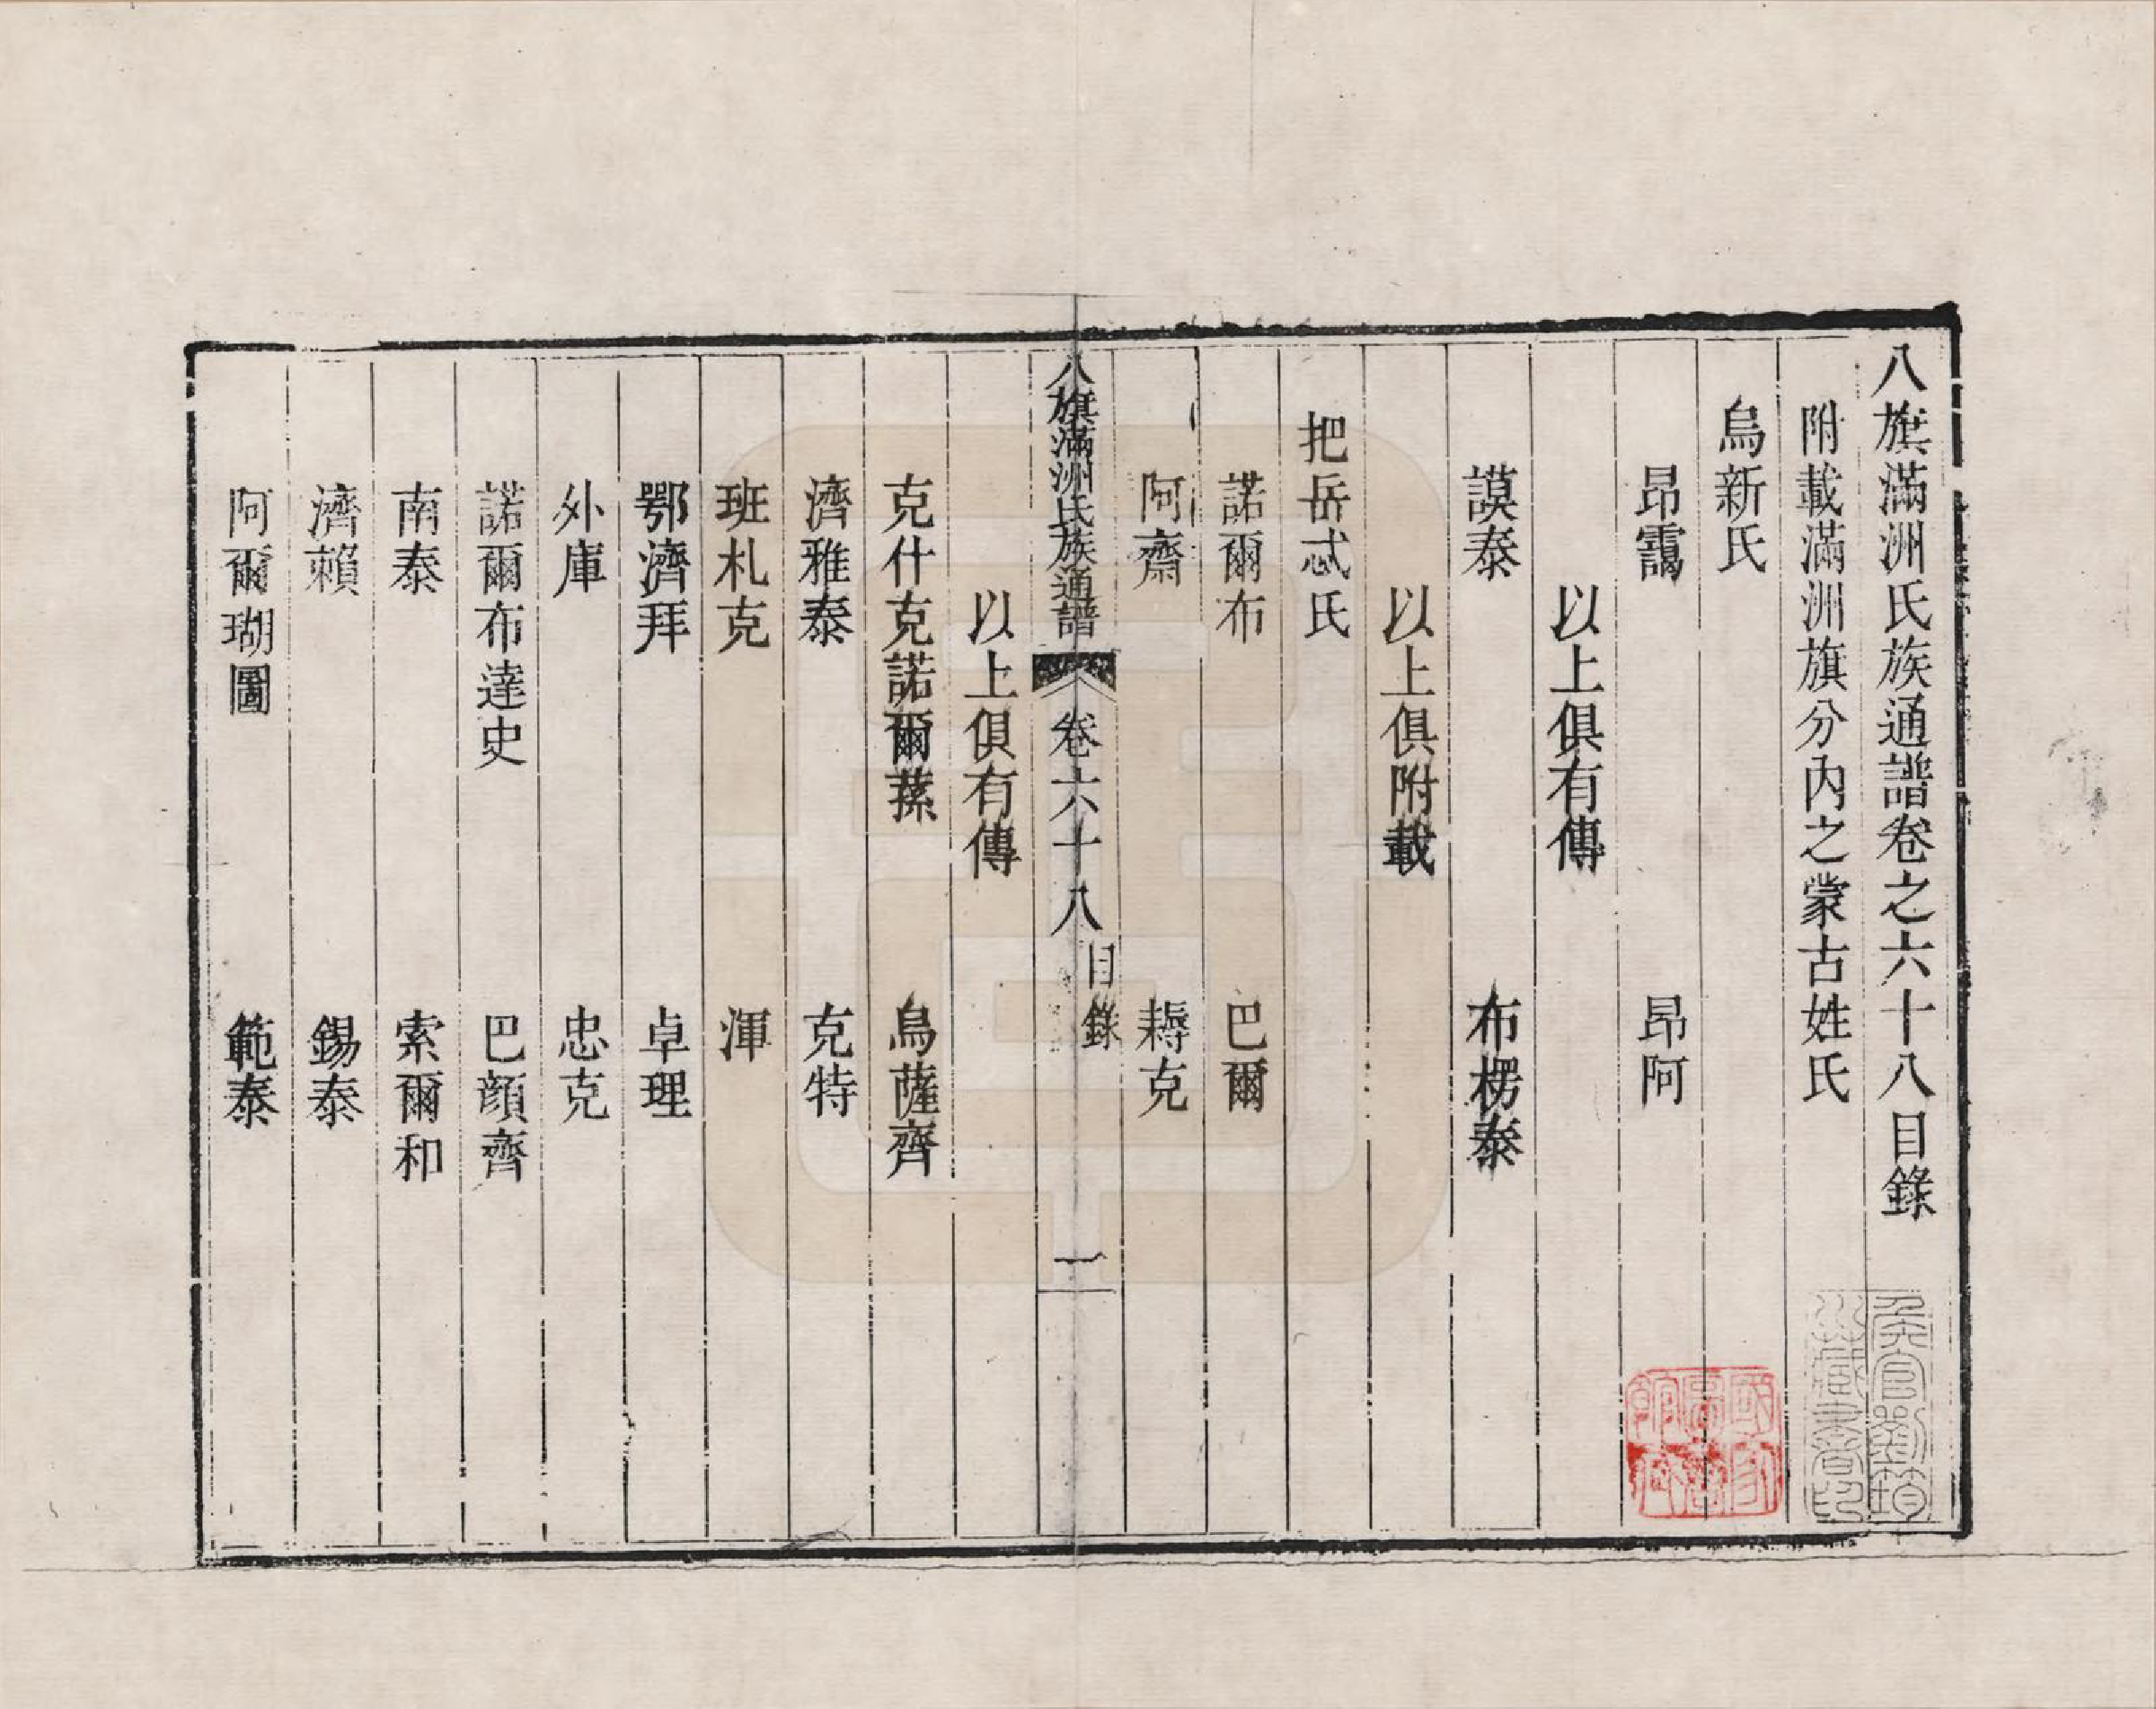 八旗滿洲氏族通譜卷之六十八目錄
附載滿洲旗分內之蒙古姓氏
烏新氏
昂靄　昂阿
以上俱有傳
謨泰　布楞泰
以上俱附載
把岳忒氏
諾爾布　巴爾
阿齋　耨克
八旗滿洲氏族通譜　卷六十八　目錄　一
以上俱有傳
克什克諾爾蓀　烏薩齊
濟雅泰　克特
班札克　渾
鄂濟拜　卓理
外庫　忠克
諾爾布達史　巴顔齊
南泰　索爾和
濟賴　錫泰
阿爾瑚圖　範泰
侯官劉筠川藏書印